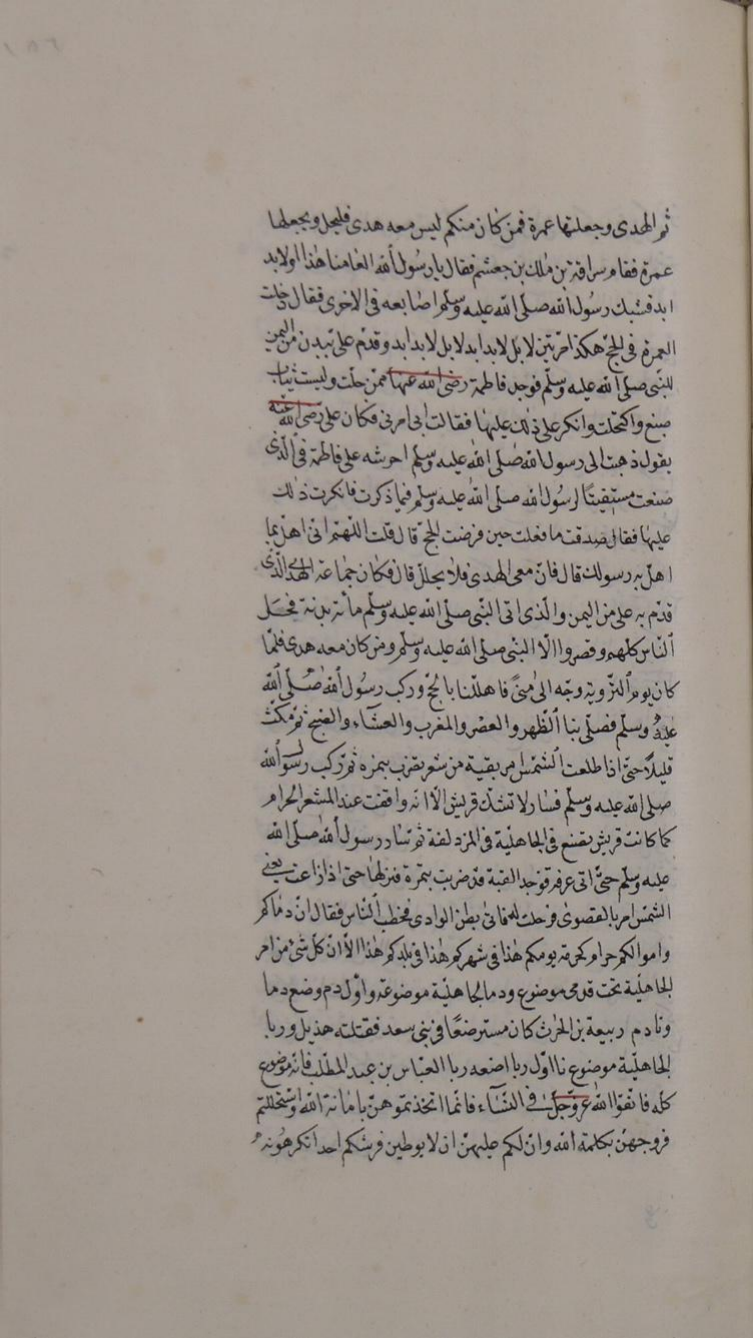 ثم الهدى وجعلتها عمرة فمن كان منكم ليس معه هدى فليحل ويجعلها
عمرة فقام سراقة بن مٰلك بن جعشم فقال يا رسول الله العامنا هذا او لابد
ابد فشبك رسول الله صلى الله عليه وسلم اصابعه فى الاخرى فقال دخلت
العمرة فى الحج هكذا مرتين لا بل لابد ابد لا بل لابد ابد وقدم على ببدن من اليمن
للنبى صلى الله عليه وسلم فوجد فاطمة رضى الله عنها ممن حلت ولبست ثياب
صبغ واكتحلت وانكر على ذلك عليها فقالت ابى امرنى فكان على رضى الله عنه
يقول ذهبت الى رسول الله صلى الله عليه وسلم احرشه على فاطمة فى الذى
صنعت مستفيتا لرسول الله صلى الله عليه وسلم فيما ذكرت فانكرت ذلك
عليها فقال صدقت ما فعلت حين فرضت الحج قال قلت اللهم انى اهل بما
اهل به رسولك قال فان معى الهدى فلا يحلل قال فكان جماعة الهدى الذى
قدم به على من اليمن والذى اتى النبى صلى الله عليه وسلم مائة بدنة فحل
الناس كلهم وقصروا الا النبى صلى الله عليه وسلم ومن كان معه هدى فلما
كان يوم التروية وجه الى منى فاهللنا بالحج وركب رسول الله صلى الله
عليه وسلم فصلى بنا الظهر والعصر والمغرب والعشاء والصبح ثم مكث
قليلا حتى اذا طلعت الشمس امر بقبة من شعر تضرب بنمرة ثم ركب رسول الله
صلى الله عليه وسلم فسار لا تشك قريش الا انه واقفت عند المشعر الحرام
كما كانت قريش تصنع فى الجاهلية فى المزدلفة ثم سار رسول الله صلى الله
عليه وسلم حتى اتى عرفة فوجد القبة قد ضربت بنمرة فنزلها حتى اذا زاغت يعنى
الشمس امر بالقصوى فرحلت له فاتى بطن الوادى فخطب الناس فقال ان دماكم
واموالكم حرام كحرمة يومكم هذا فى شهركم هذا فى بلدكم هذا الا ان كل شىء من امر
الجاهلية تحت قدمى موضوع ودما الجاهلية موضوعة واول دم وضع دما
ونا دم ربيعة بن الحٰرث كان مسترضعا فى بنى سعد فقتلته هذيل وربا
الجاهلية موضوع نا اول ربا اضعه ربا العباس بن عبد المطلب فانه موضوع
كله فاتقوا الله عز وجل فى النساء فانما اتخذتموهن بامانة الله واستحللتم
فروجهن بكلمة الله وان لكم عليهن ان لا يوطين فرشكم احدا تكرهونه